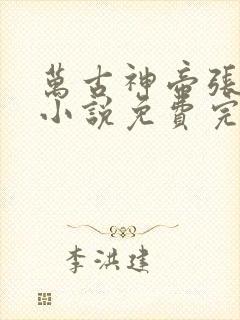 萬古神帝張
小說免費完
李洪建